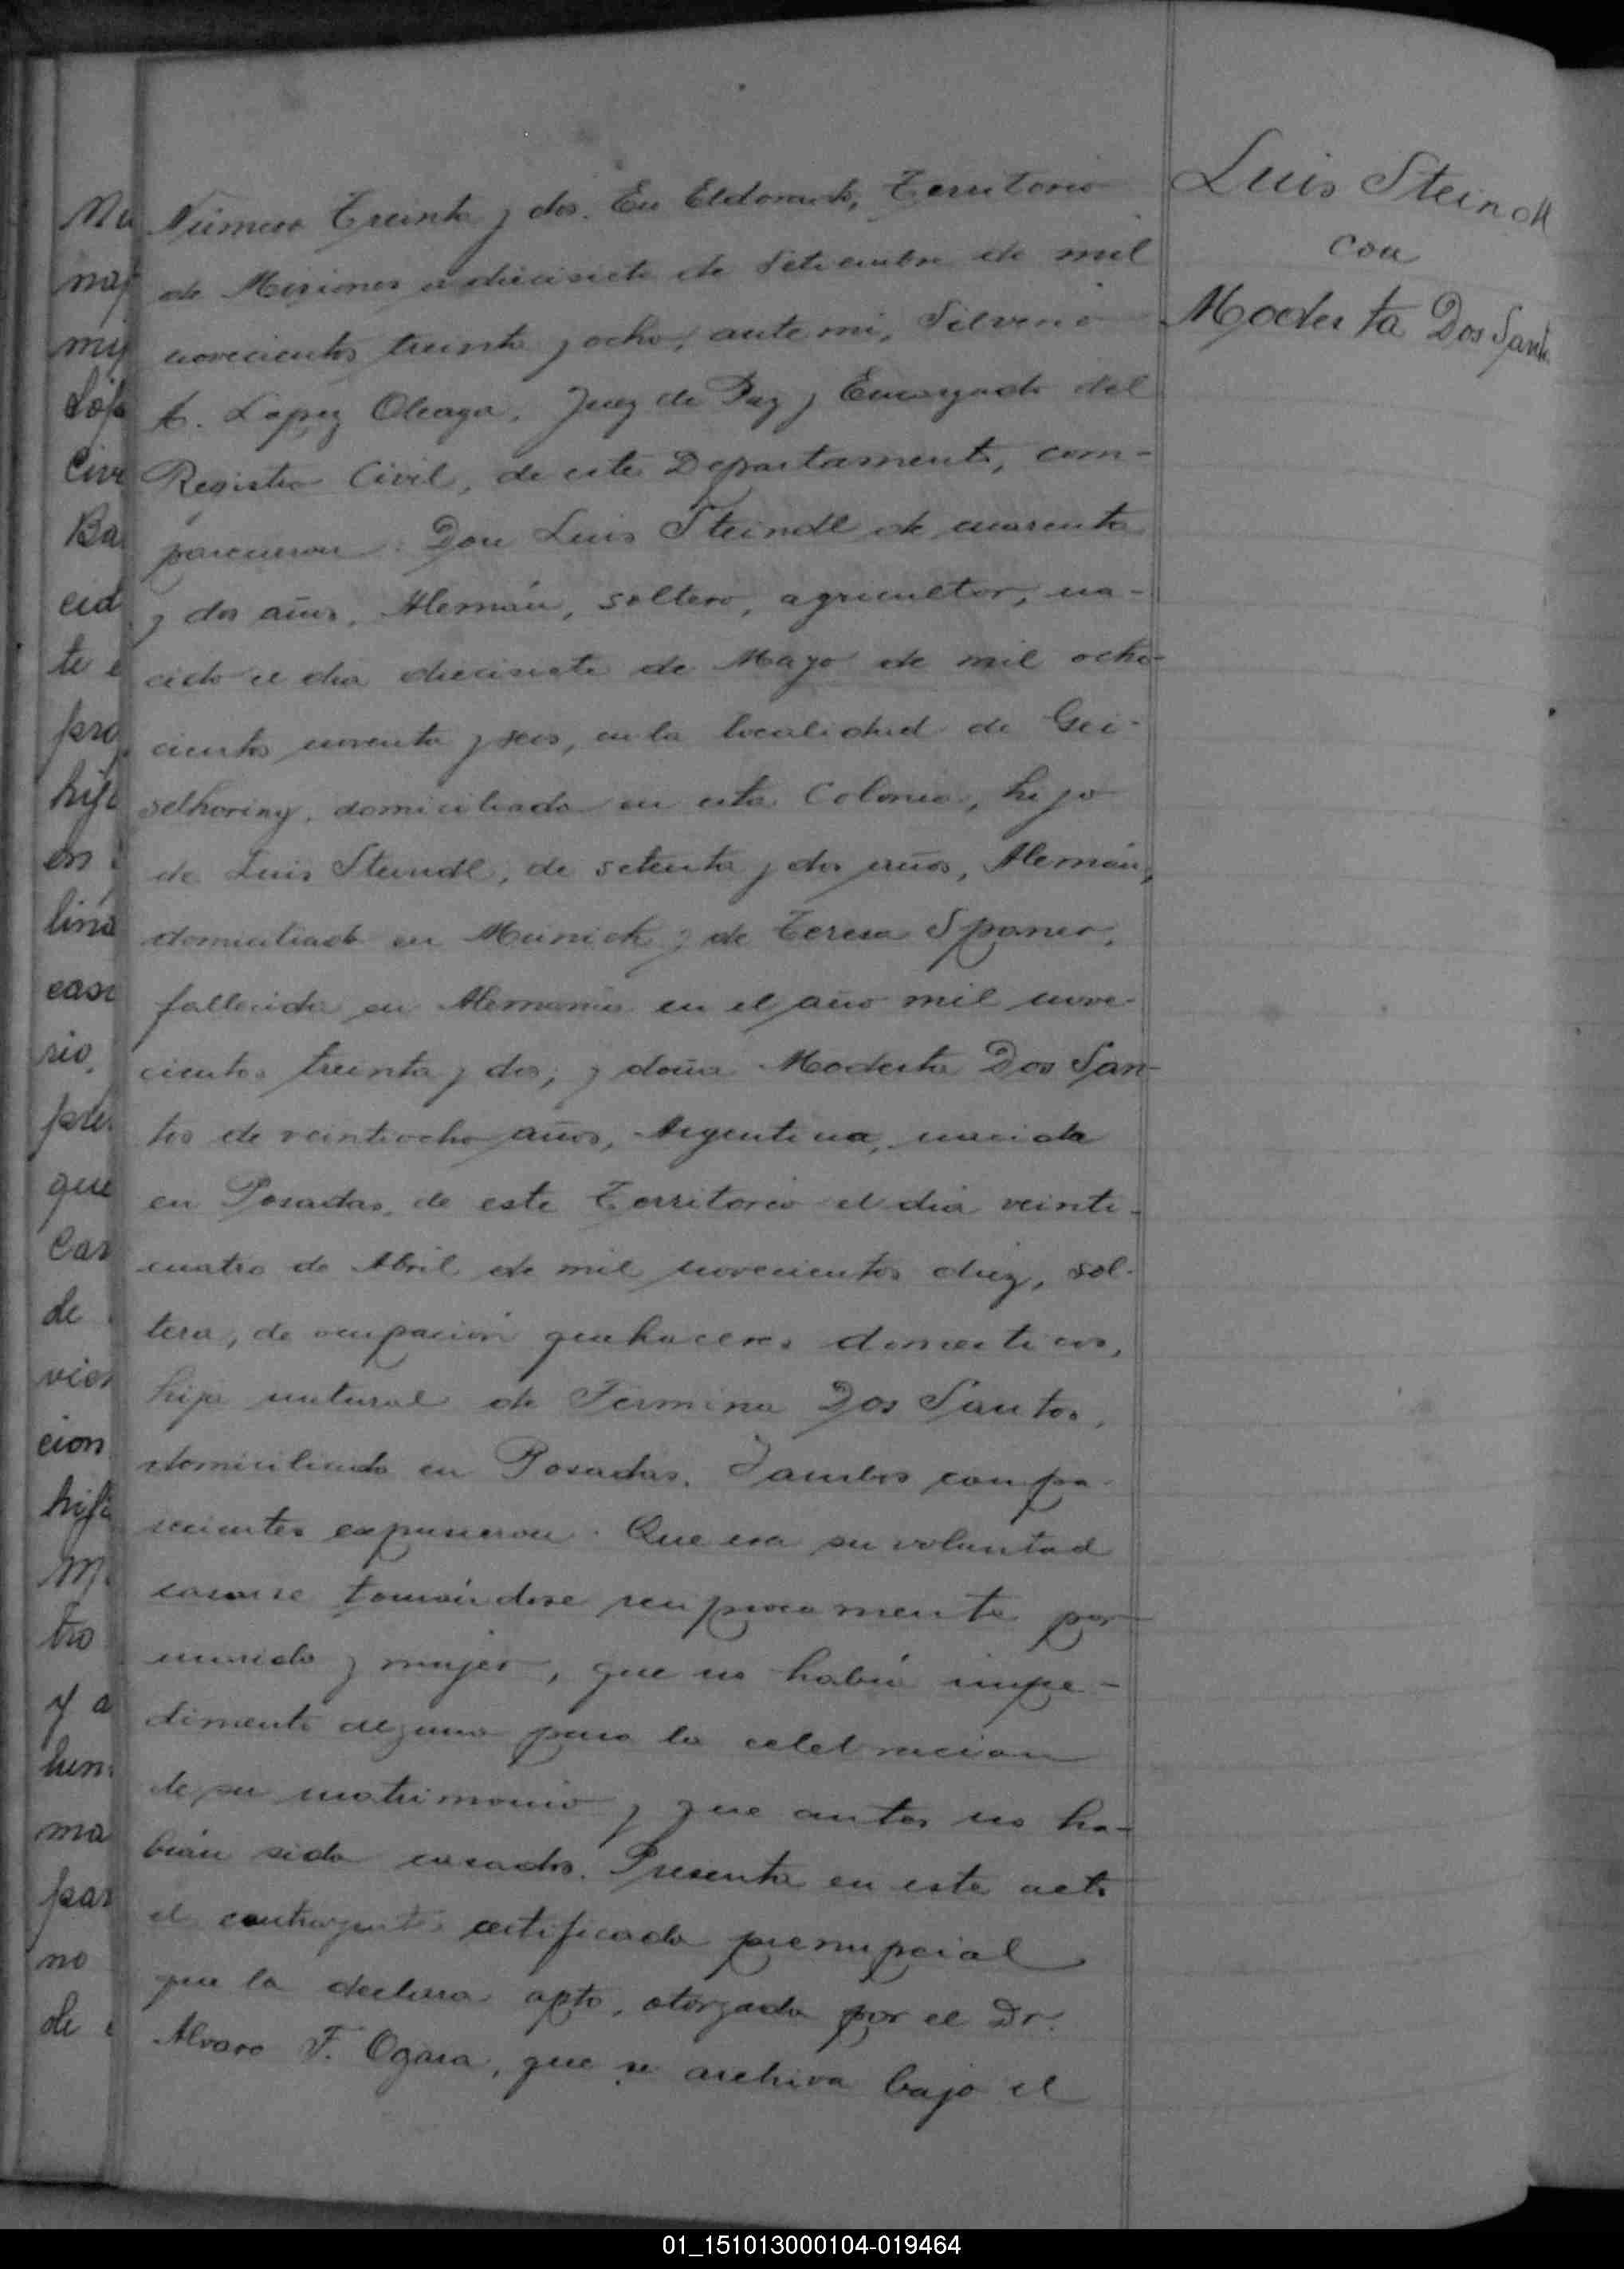 Luis Steindl
con
Modesta Dos Santos
Número Treinta y dos. En Eldorado, Territorio
de Misiones a diecisiete de Setiembre de mil
novecientos treinta y ocho, ante mi, Silverio
A. Lopez Oleaga, Juez de Paz y Encargado del
Registro Civil, de este Departamento, com-
parecieron: Don Luis Steindl de cuarenta
y dos años, Alemán, soltero, agricultor, na-
cido el dia diecisiete de Mayo de mil ocho-
cientos noventa y seis, en la localidad de Gei-
selhoring, domiciliado en esta Colonia, hijo
de Luis Steindl, de setenta y dos años, Alemán,
domiciliado en Munich y de Teresa Spaner,
fallecida en Alemania en el año mil nove-
cientos treinta y dos; y doña Modesta Dos San-
tos de veintiocho años, Argentina, nacida
en Posadas, de este Territorio el dia veinti-
cuatro de Abril de mil novecientos diez, sol-
tera, de ocupación quehaceres domesticos,
hija natural de Fermina Dos Santos,
domiciliada en Posadas. Y ambos compa-
recientes expusieron: Que era su voluntad
casarse tomándose reciprocamente por
marido y mujer, que no había impe-
dimento alguno para la celebracion
de su matrimonio y que antes no ha-
bían sido casados. Presenta en este acto
el contrayente certificado prenupcial
que lo declara apto, otorgado por el Dr.
Alvaro F. Ogara, que se archiva bajo el
Nu
civi
Ba
cid
te
pro
en
lina
sio,
que
Cas
de
cion
M
tro
y a
ma
par
no
de
01_151013000104-019464